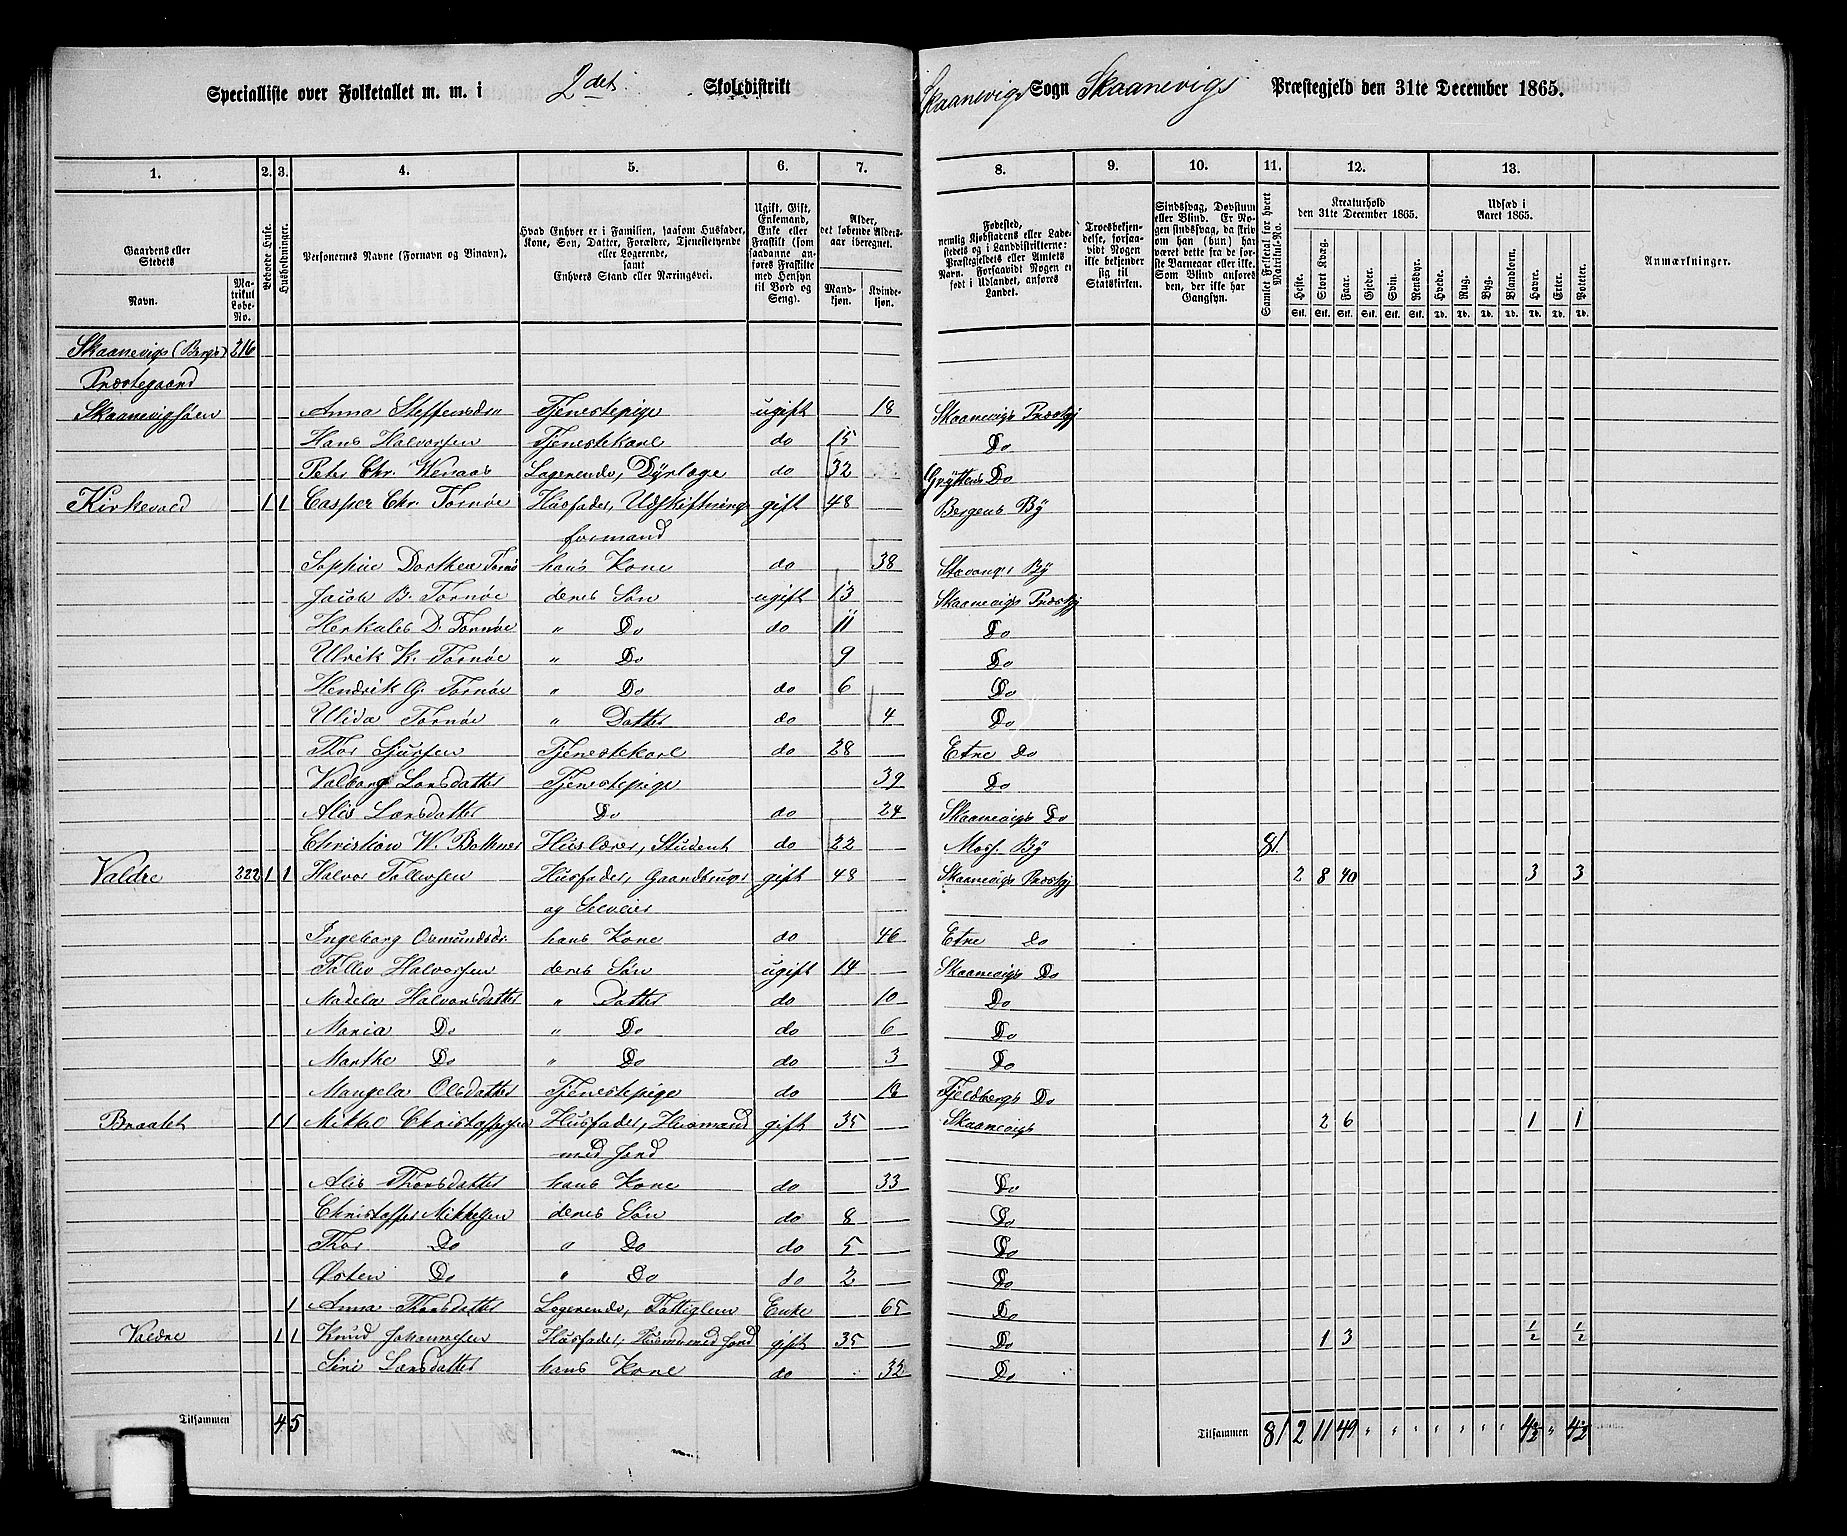 Specialliste over Folketallet m. m. i 2det Skoledistrikt Skaanevigs Sogn Skaanevigs Præstegjeld den 31te December 1865.
1. 2. 3. 4. 5. 6. 7. 8. 9. 10. 11. 12. 13.
Gaardens eller Stedets Navn.
Matrikul Løbe-No.
Beboede Huse.
Husholdninger.
Personernes Navne (Fornavn og Binavn).
Hvad Enhver er i Familien, saasom Husfader, Kone, Søn, Datter, Forældre, Tjenestetyende eller Logerende, samt Enhvers Stand eller Næringsvei.
Ugift, Gift, Enkemand, Enke eller Fraskilt (som saadanne anføres Fraskilte med Hensyn til Bord og Seng).
Alder, det løbende Aldersaar iberegnet.
Mandkjøn. Kvindekjøn.
Fødested, nemlig Kjøbstadens eller Ladestedets og i Landdistrikterne: Præstegjeldets eller Amtets Navn. Forsaavidt Nogen er født i Udlandet, anføres Landet.
Troesbekjendelse, forsaavidt Nogen ikke bekjender sig til Statskirken.
Sindssvag, Døvstum eller Blind. Er Nogen sindssvag, da skriv om han (hun) har været dette fra de første Barneaar eller ikke. Som Blind anføres den, der ikke har Gangsyn.
Samlet Folketal for hvert Matrikul-No.
Kreaturhold den 31te December 1865.
Heste. Stort Kvæg. Faar. Gjeder. Svin. Rensdyr.
Udsæd i Aaret 1865.
Hvede. Rug. Byg. Blandkorn. Havre. Erter. Poteter.
Anmærkninger.
Skaanevigs (Bergs) 216
Præstegaard
Skaanevigsøen Anna Steffensdtr Tjenestepige ugift 18 Skaanevigs Præstgj
Hans Halvorsen Tjenestekarl do 15 Do
Peter Chr. Wenaas Logerende, Dyrlæge do 32 Gryttens Do
Kirkevold 1 1 Casper Chr. Tornøe Husfader, Udskiftnings gift 48 Bergens By
formand
Sophie Dorthea Tornø hans Kone do 38 Stavanger By
Jacob B. Tornøe deres Søn ugift 13 Skaanevigs Præstgj
Herkules D. Tornøe " Do do 11 Do
Ulrik K. Tornøe " Do 9 Do
Hendrik G. Tornøe " Do do 6 Do
Ulida Tornøe " Datter do 4 Do
Thor Sjursen Tjenestekarl do 28 Etne Do
Valborg Larsdatter Tjenestepige 39 Do
Alis Larsdatter Do do 24 Skaanevigs Do
Christian W. Bothner Huslærer, Student do 22 Moss By 81
Valdre 222 1 1 Halvor Tollevsen Husfader, Gaardbruger gift 48 Skaanevigs Præstgj 2 8 40 3 3
og Selveier
Ingeborg Osmundsdr hans Kone do 46 Etne Do
Tollev Halvorsen deres Søn ugift 14 Skaanevigs Do
Madela Halvorsdatter " Datter do 10 Do
Maria Do " Do do 6 Do
Marthe Do " Do do 3 Do
Mangela Olsdatter Tjenestepige do 18 Fjeldbergs Do
Braatet 1 1 Mikkel Christoffersen Husfader, Husmand gift 35 Skaanevigs 2 6 1 1
med Jord
Alis Thorsdatter hans Kone do 33 Do
Christoffer Mikkelsen deres Søn do 8 Do
Thor Do " Do do 5 Do
Østen Do " Do do 2 Do
1 Anna Thorsdatter Logerende, Fattiglem Enke 65 Do
Valdre 1 1 Knud Johannesen Husfader, Husm med Jord gift 35 Do 1 3 1/2 1/2
Sini Larsdatter hans Kone do 32 Do
Tilsammen 4 5 Tilsammen 81 2 11 49 " " " " " " " 4 1/2 " 4 1/2